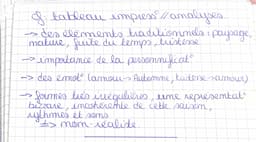 cf tableau impress° // analyses
→ des éléments traditionnels : paysage,
nature, fuite du temps, tristesse
→ importance de la personnificat°
→ des émot° (amour → Automne, tristesse → amour)
→ formes très irrégulières, une représentat°
bizarre, incohérente de cette saison,
rythmes et sons
⇒ non-réaliste